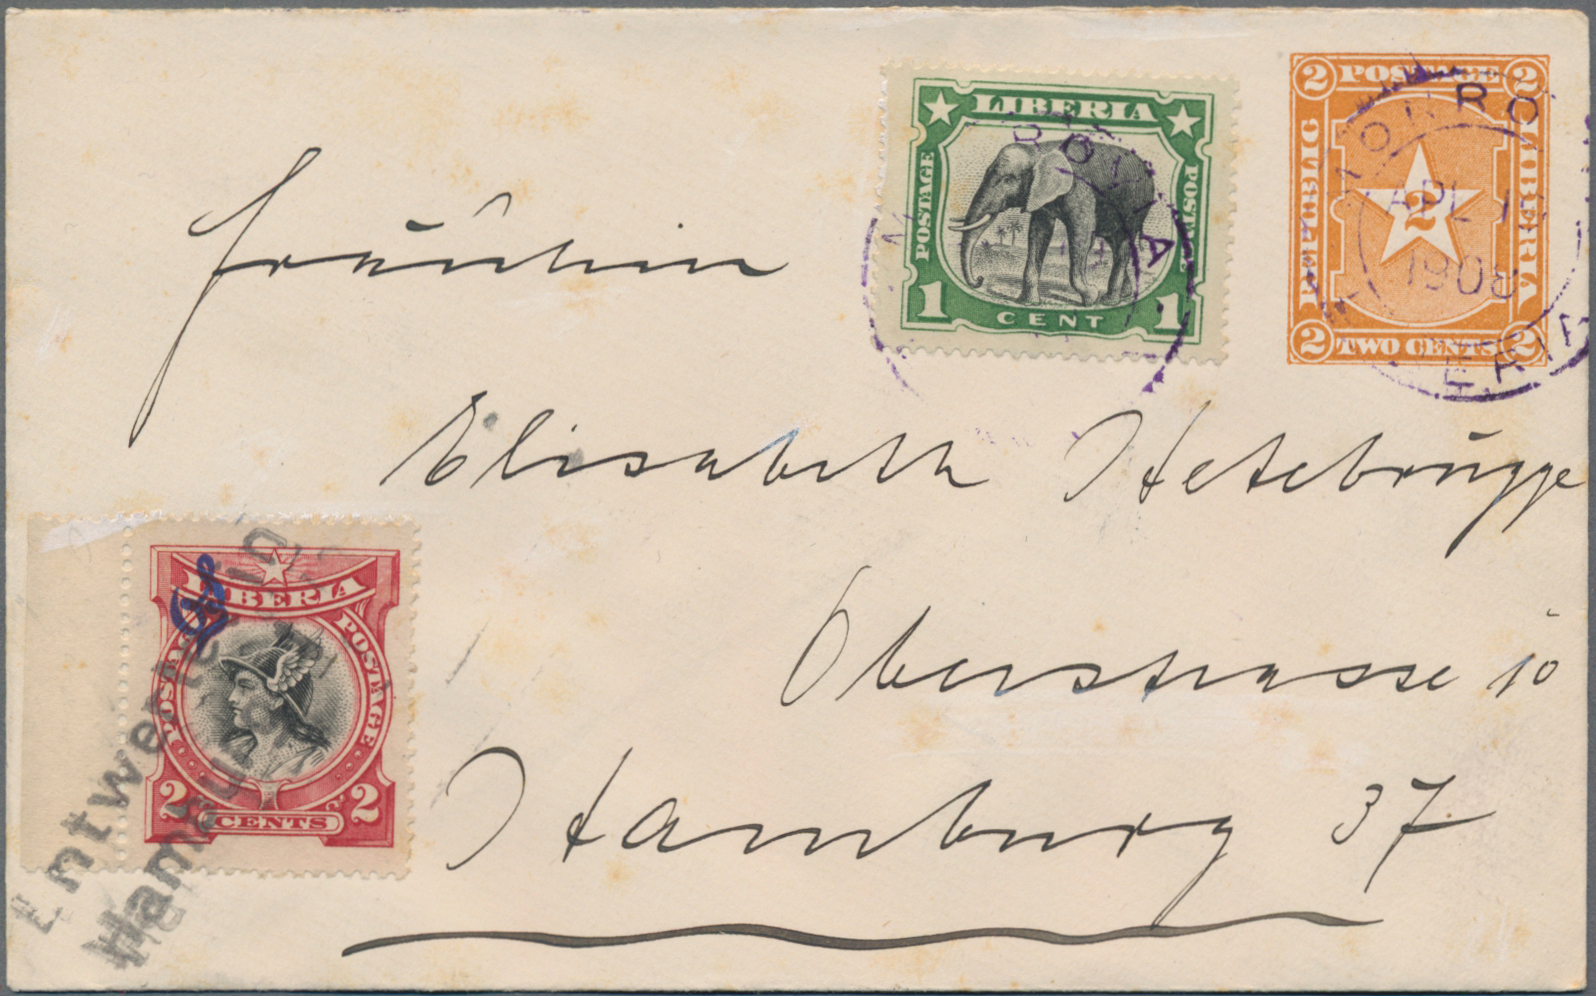 2 POSTAGE 2
REPUBLIC
LIBERIA
2
2 TWO CENTS 2
MONRO
APL 1
1908
ERIA
LIBERIA
POSTAGE
POSTAGE
1 CENT 1
MONROVIA
Fräulein
Elisabeth Hetebrügge
Oberstrasse 10
Hamburg 37
LIBERIA
POSTAGE
POSTAGE
2 CENTS 2
Entwertet in
Hamburg